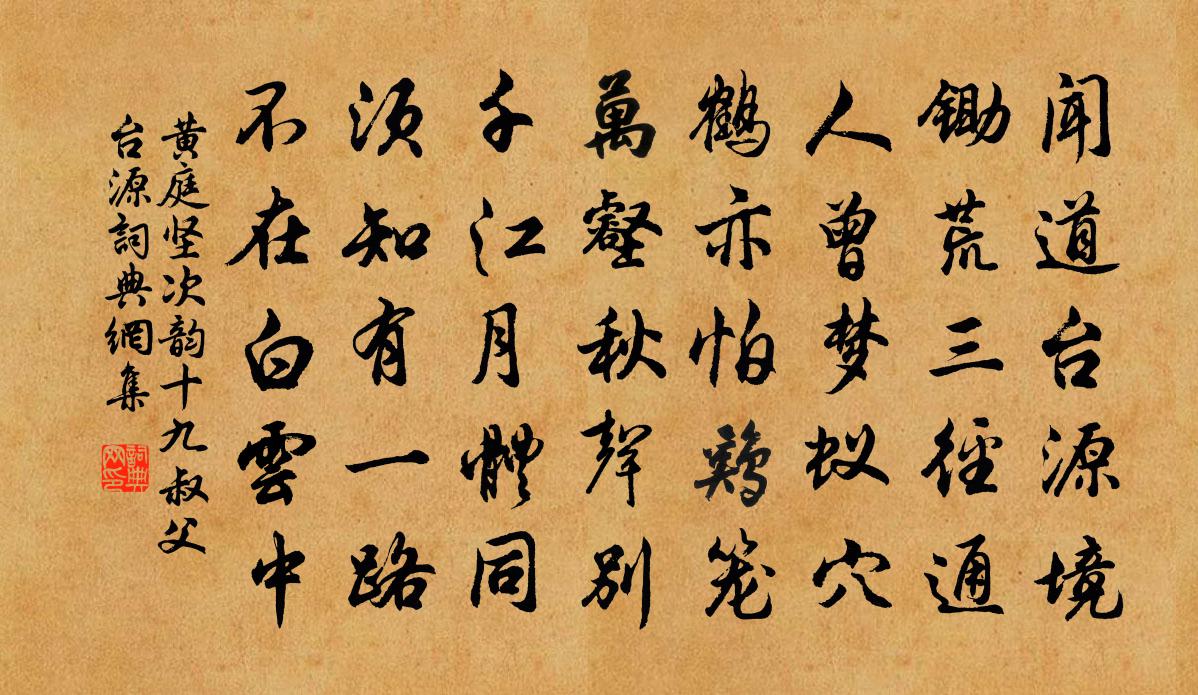 闻道台源境
鋤荒三径通
人曾梦蚁穴
鹤亦怕鷄笼
萬壑秋聲别
千江月體同
须知有一路
不在白雲中
黄庭坚次韵十九叔父
台源詞典網集
詞典网印